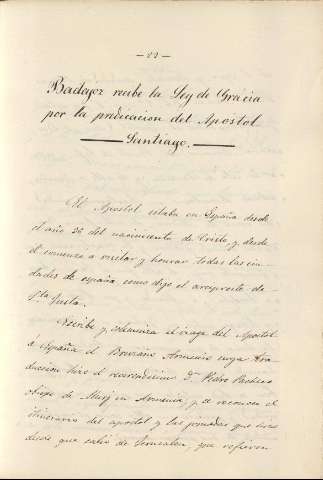 - 22 -
Badajoz recibe la Ley de Gracia
por la predicacion del Apostol
Santiago.
El Apostol estaba en España desde
el año 36 del nacimiento de Cristo, y desde
él comenzó a visitar y honrar todas las ciu-
dades de españa, como dijo el arcipreste de
Sta Justa.
Recibe y solemniza el viage del Apostol
á España el Breviario Armenio cuya tra-
duccion hizo el reverendisimo D. Pedro Pacheco
obispo de en Armenia, y se reconoce el
itinerario del apostol y las jornadas que hizo
desde que salió de Jerusalen, que refieren